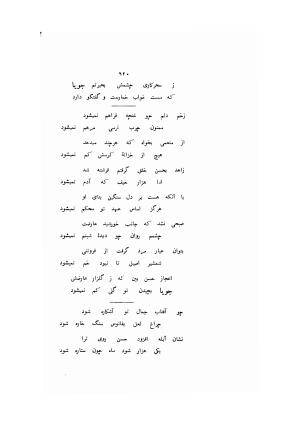 ۹۴۰
ز سحرکاری چشمش بحیرتم جویا
که مست خواب خمارست و گفتگو دارد
زخم دلم چو غنچه فراهم نمیشود
ممنون چرب نرمی مرهم نمیشود
از منعمی بخواه که هرچند میدهد
هیچ از خزانهٔ کرمش کم نمیشود
زاهد بحسن خلق گرفتم فرشته شد
اما هزار حیف که آدم نمیشود
با آنکه هست بر دل سنگین بنای او
هرگز اساس عهد تو محکم نمیشود
صبحی نشد که جانب خورشید عارضت
چشمم روان چو دیدهٔ شبنم نمیشود
بتوان عیار مرد گرفت از فروتنی
شمشیر اصیل تا نبود خم نمیشود
اعجاز حسن بین که ز گلزار عارضش
جویا بچیدن تو گلی کم نمیشود
چو آفتاب جمال تو آشکاره شود
چراغ لعل بفانوس سنگ خاره شود
نشان آبله افزود حسن روی ترا
یکی هزار شود ماه چون ستاره شود